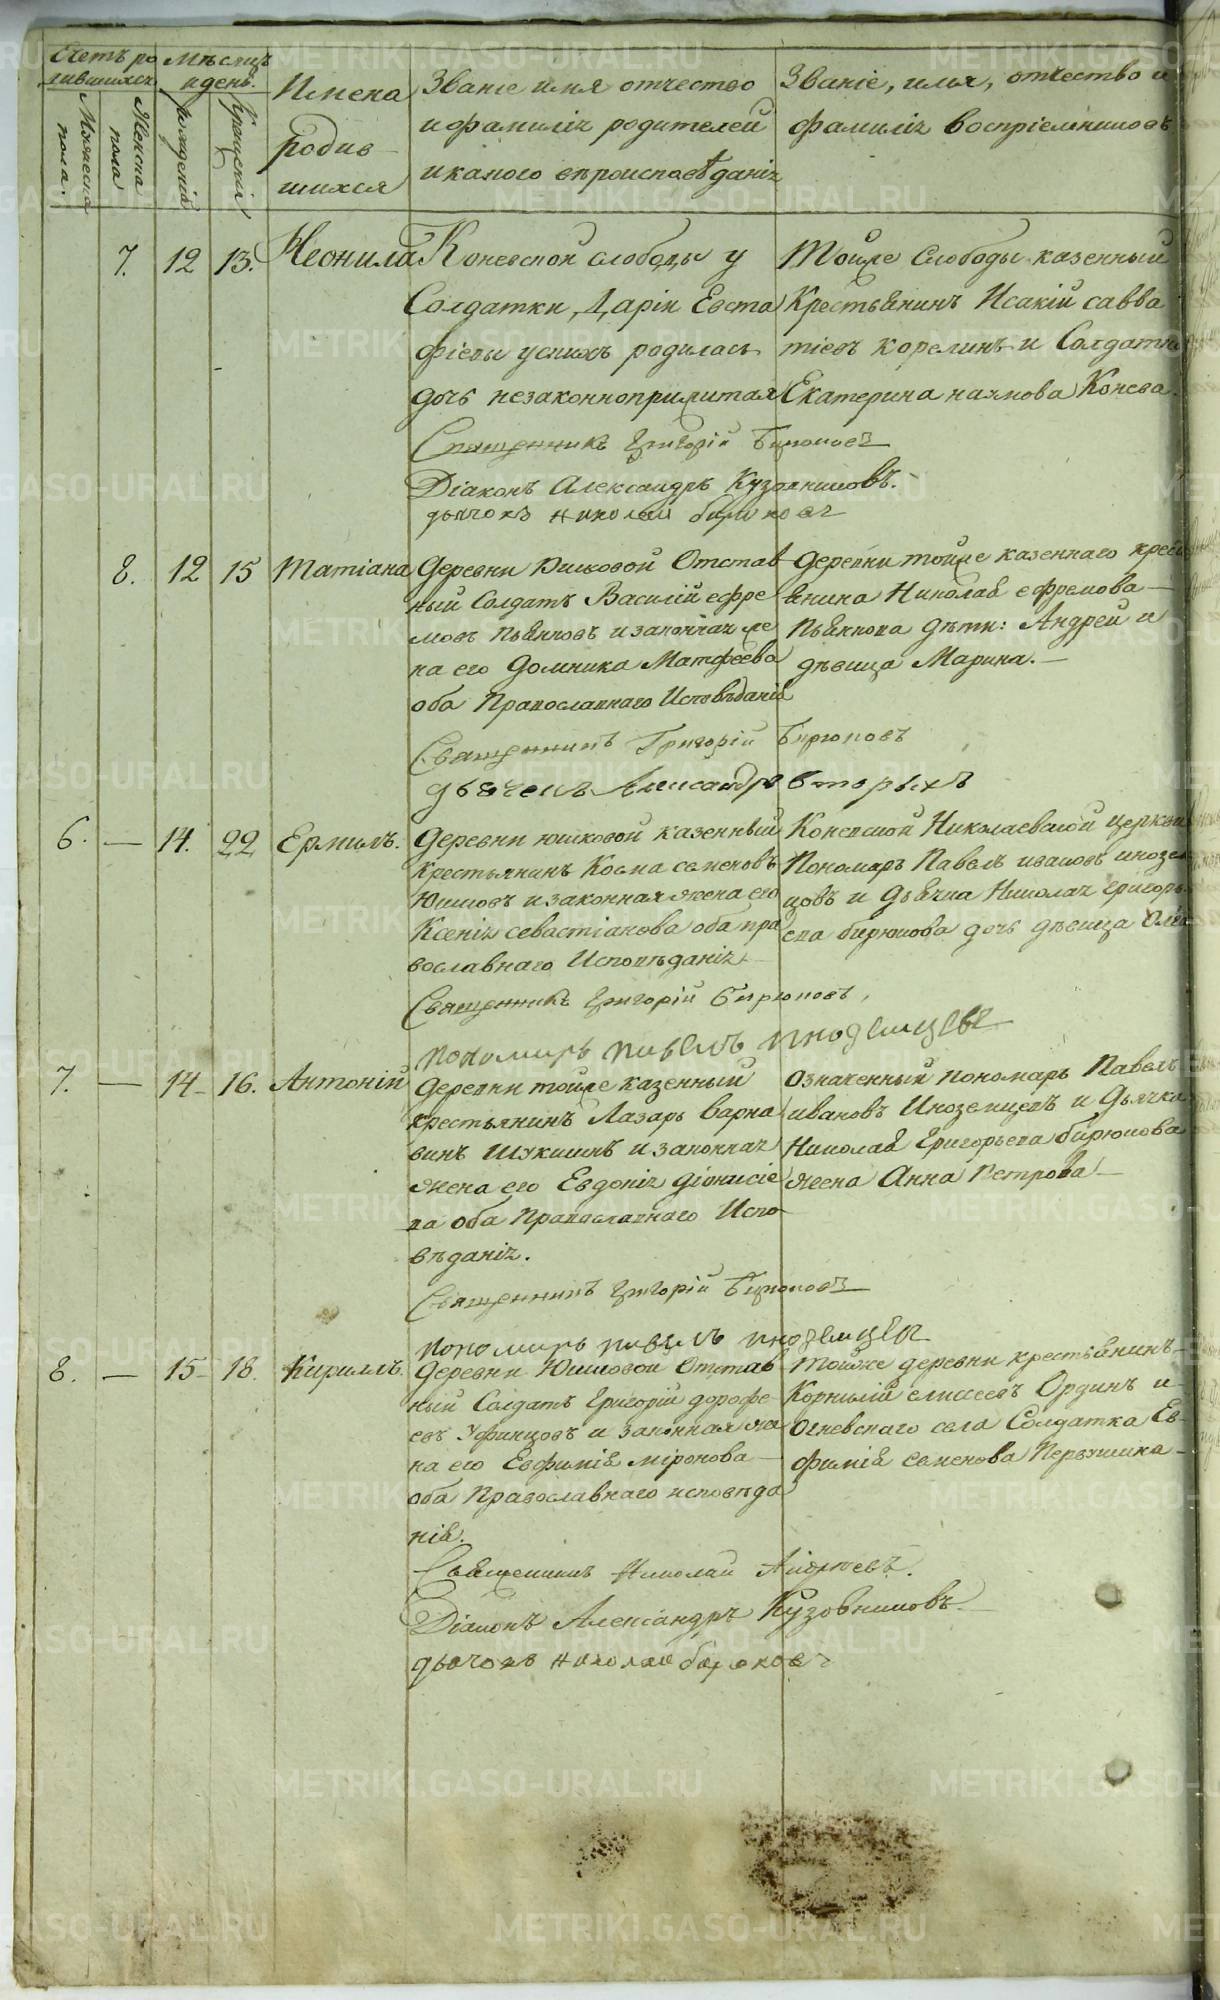 Счетъ ро
дившихся
Мѣсяцъ
и день.
Мужеска
пола.
Женска
пола
рожденія
Крещенія
Имена
родив-
шихся
Званіе имя отчество
и фамилія родителей
и какого вѣроисповѣданія
Званіе, имя, отчество и
фамилія воспріемниковъ
7. 12 13. Неонила
Коневской слободы у
Солдатки Даріи Евста
фіевы у нихъ родилась
дочь незаконноприжитая
Тойже Слободы казенный
Крестьянинъ Исакій савва
тіевъ корелинъ и Солдатка
Екатерина наумова Конева.
Священникъ Григорій Бирюковъ
Діаконъ Александръ Кузовниковъ.
дьячокъ николай бирюковъ
8. 12 15 Татіана
Деревни Отстав
ный Солдатъ Василій ефре
мовъ Пьянковъ и законная же
на его Домника Матфеева
оба Православнаго Исповѣданія
Деревни тойже казеннаго крест
янина Николая ефремова
Пьянкова дѣти: Андрей и
дѣвица Марина.
Священникъ Григорій Бирюковъ
дьячекъ Александръ вторыхъ
6. — 14. 22 Ермилъ.
Деревни юшковой казенный
крестьянинъ Косма семеновъ
Юшковъ и законная жена его
Ксенія севастіанова оба пра
вославнаго Исповѣданія
Коневской Николаевской церкви
Пономарь Павелъ ивановъ инозем
цовъ и Дьячка Николая григорь
ева бирюкова дочь дѣвица
Священникъ Григорій Бирюковъ,
пономарь павелъ иноземцевъ
7. — 14 16. Антоній
Деревни тойже казенный
крестьянинъ Лазарь варна
винъ Шукшинъ и законная
жена его Евдокія діонисіе
ва оба Православнаго Испо
вѣданія.
Означенный пономарь Павелъ
ивановъ Иноземцевъ и Дьячка
Николая Григорьева бирюкова
жена Анна Петрова
Священникъ Григорій Бирюковъ
пономарь павелъ иноземцевъ
8. — 15 18. Кириллъ.
Деревни Юшковой Отстав
ный Солдатъ Григорій дорофе
евъ Уфинцовъ и законная же
на его Евфимія міронова
оба Православнаго исповѣда
нія.
Тойже деревни крестьянинъ
Корнилій елисеевъ Ординъ и
Огневскаго села Солдатка Ев
фимія семенова Первушина
Священникъ Николай
Діаконъ Александръ Кузовниковъ.
дьячокъ николай бирюковъ
METRIKI.GASO-URAL.RU